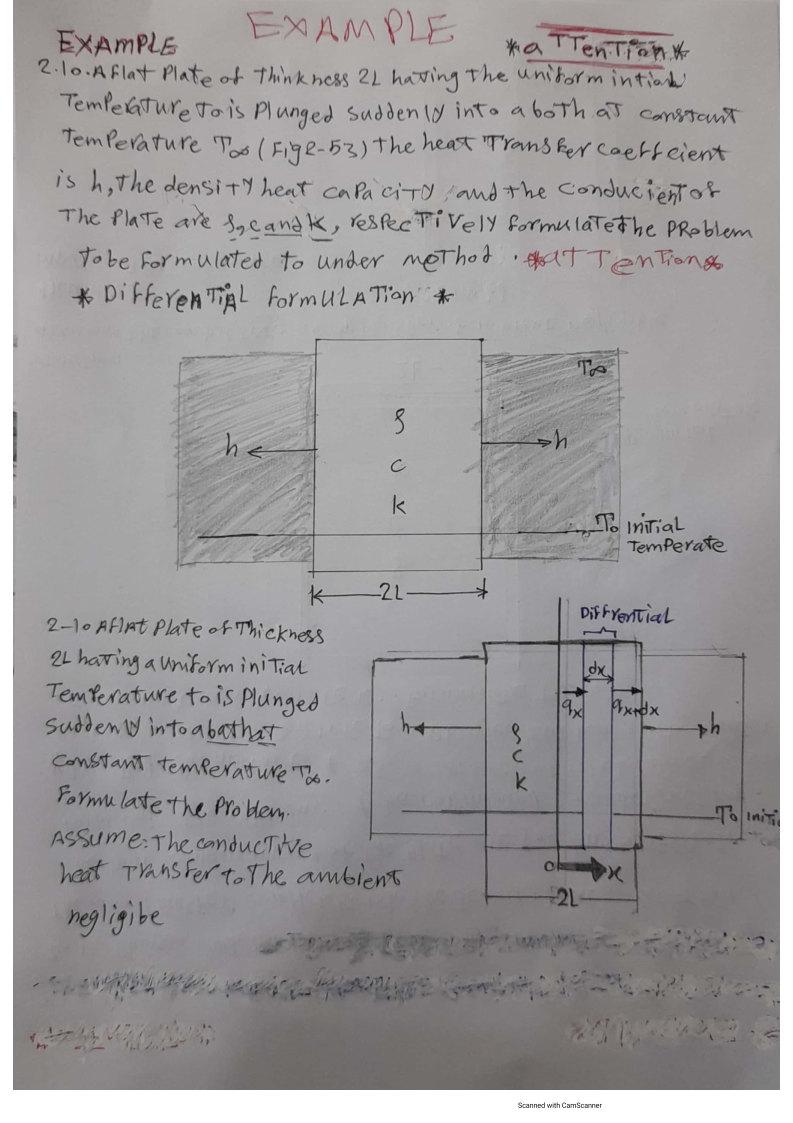 EXAMPLE
EXAMPLE
*a TTenTion*
2.10.A flat Plate of Thinkness 2L having The uniform intial
TemPeRaTuRe To is Plunged suddenly into a both at constant
Temperature T∞ (Fig2-53) The heat Transker coeffcient
is h, The densiTy heat caPaciTy, and the conducient of
The Plate are ρ, c and K, resPecTively formulate the PRoblem
Tobe formulated to under meThod. *aTTenTion*
* DifferenTiAL formULATion *
T∞
h
h
ρ
c
k
To INiTiAL
TemPeRate
2L
2-10 A flAt Plate of Thickness
2L having a uniform iniTial
TemPerature to is Plunged
suddenly into a bath at
constant temPeRature T∞.
FoRmulate the Problem.
ASSume: The conducTive
heat Transfer to The ambient
negligibe
DiffrenTiAL
dx
qx
qx+dx
h
h
ρ
c
k
To iniTi
o
x
2L
Scanned with CamScanner